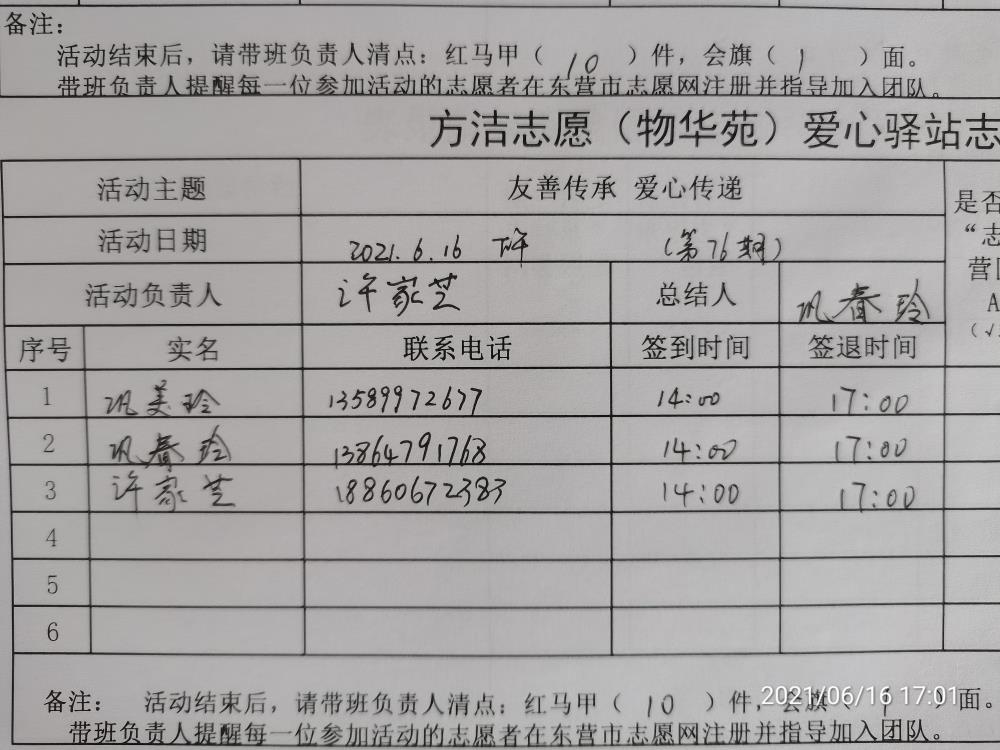 备注：
活动结束后，请带班负责人清点：红马甲（ 10 ）件，会旗（ 1 ）面。
带班负责人提醒每一位参加活动的志愿者在东营市志愿网注册并指导加入团队。
方洁志愿（物华苑）爱心驿站志
活动主题 友善传承 爱心传递
是否
活动日期 2021.6.16 下午 （第76期）
“志
活动负责人 许家芝 总结人 巩春玲
营
A
（√
序号 实名 联系电话 签到时间 签退时间
1 巩美玲 13589972677 14:00 17:00
2 巩春玲 13864791768 14:00 17:00
3 许家芝 18860672383 14:00 17:00
4
5
6
备注： 活动结束后，请带班负责人清点：红马甲（ 10 ）件，会旗（ 1 ）面。
2021/06/16 17:01
带班负责人提醒每一位参加活动的志愿者在东营市志愿网注册并指导加入团队。